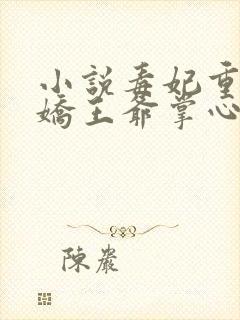 小說毒妃重
嬌王爺掌心
陳嚴